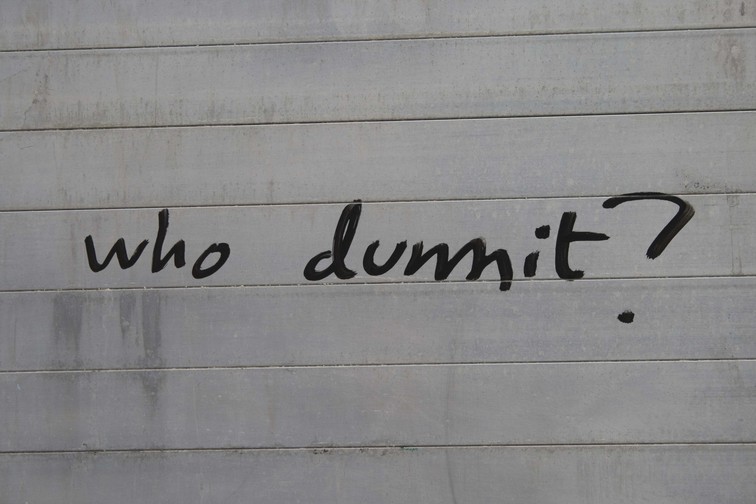 who dunnit?